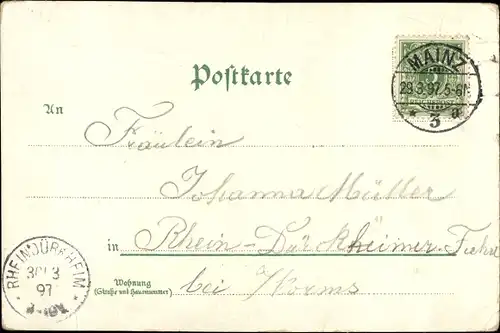 Postkarte
MAINZ
29.3.97.5-6N.
* 3 a
An
Fräulein
Johanna Müller
in Rhein-Dürkheimer-Fahrt
Wohnung
(Straße und Hausnummer)
bei Worms
* RHEINDÜRKHEIM *
30/3
97